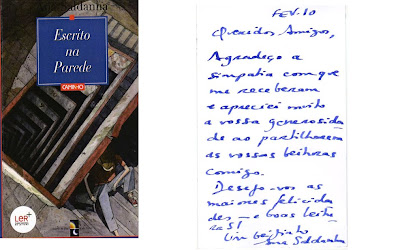 Ana Saldanha
Escrito
na
Parede
CAMINHO
LER+
FEV. 10
Queridos Amigos,
Agradeço a
simpatia com que
me receberam
e apreciei muito
a vossa generosida
de ao partilharem
as vossas leituras
comigo.
Desejo-vos as
maiores felicida
des — e boas leitu
ras!
Um beijinho
Ana Saldanha